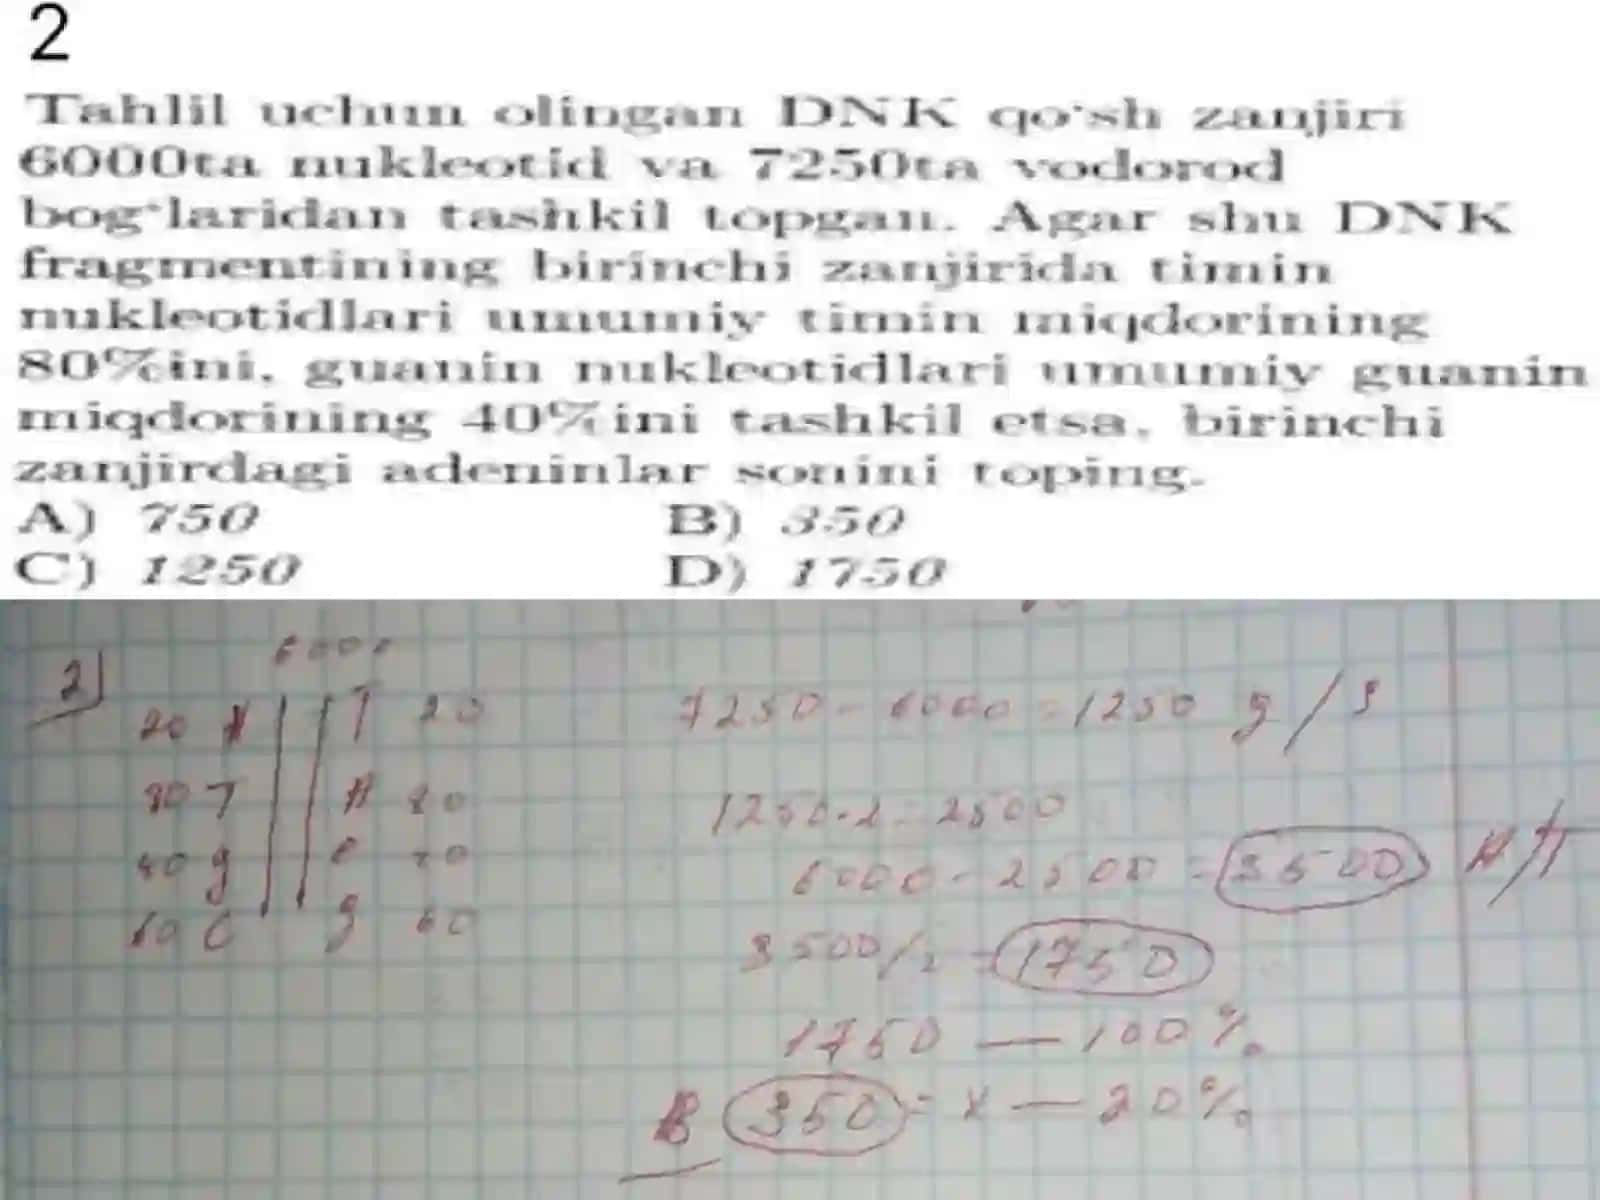 2
Tahlil uchun olingan DNK qo'sh zanjiri
6000ta nukleotid va 7250ta vodorod
bog'laridan tashkil topgan. Agar shu DNK
fragmentining birinchi zanjirida timin
nukleotidlari umumiy timin miqdorining
80%ini, guanin nukleotidlari umumiy guanin
miqdorining 40%ini tashkil etsa, birinchi
zanjirdagi adeninlar sonini toping.
A) 750 B) 350
C) 1250 D) 1750
2) 6000
20 A T 20 7250 - 6000 = 1250 g/s
80 T A 80 1250 · 2 = 2500
40 g c 40 6000 - 2500 = 3500 A/T
60 C g 60 3500/2 = 1750
1750 — 100%
B 350 = x — 20%